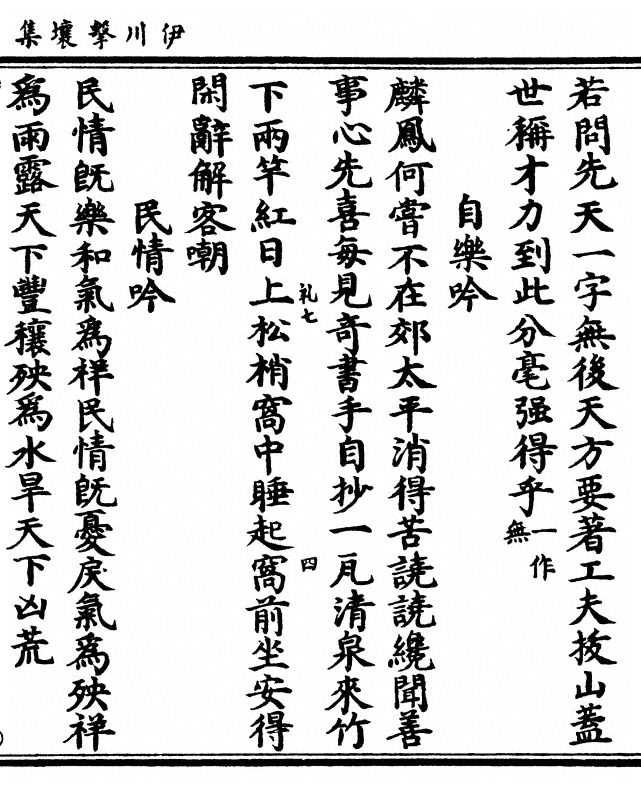 伊川擊壤集
若問先天一字無後天方要著工夫拔山蓋
世稱才力到此分毫强得乎一作無
自樂吟
麟鳳何嘗不在郊太平消得苦譊譊纔聞善
事心先喜每見奇書手自抄一瓦清泉來竹
下兩竿紅日上松梢窩中睡起窩前坐安得
閑辭解客嘲
民情吟
民情旣樂和氣爲祥民情旣憂戾氣爲殃祥
爲雨露天下豐穰殃爲水旱天下凶荒
礼七
四